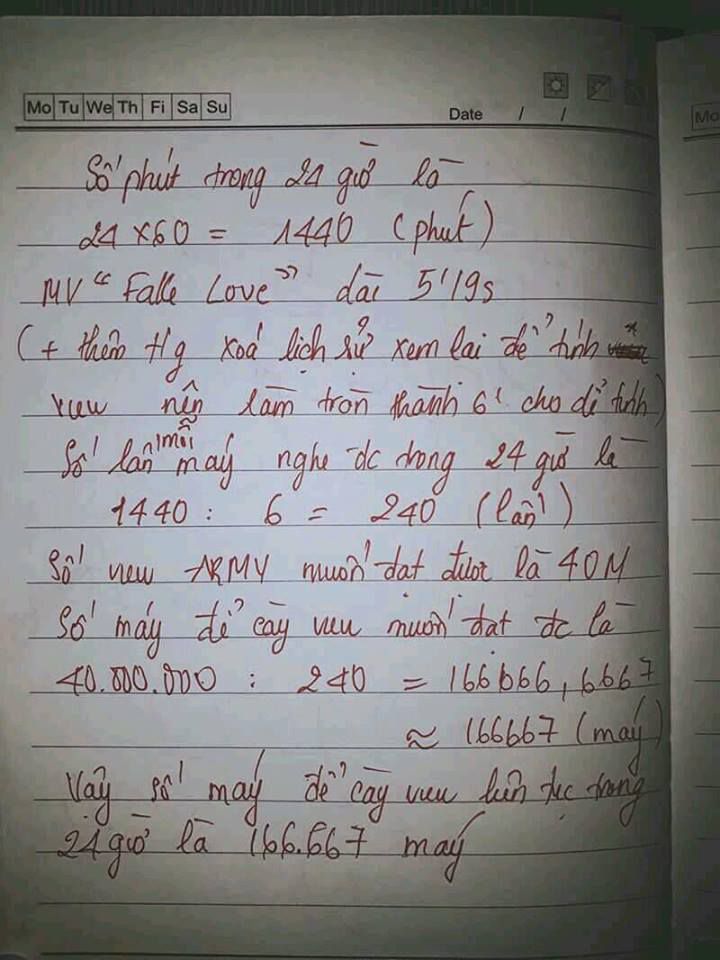 Mo Tu We Th Fi Sa Su
Date / /
Mo
Số phút trong 24 giờ là
24 x 60 = 1440 (phút)
MV "Falle Love" dài 5'19s
(+ thêm tg xoá lịch sử xem lại để tính
vieu nên làm tròn thành 6' cho dễ tính)
Số lần mỗi máy nghe đc trong 24 giờ là
1440 : 6 = 240 (lần)
Số vieu ARMY muốn đạt được là 40M
Số máy để cày vieu muốn đạt đc là
40.000.000 : 240 = 166666,6667
≈ 166667 (máy)
Vậy số máy để cày vieu liên tục trong
24 giờ là 166.667 máy